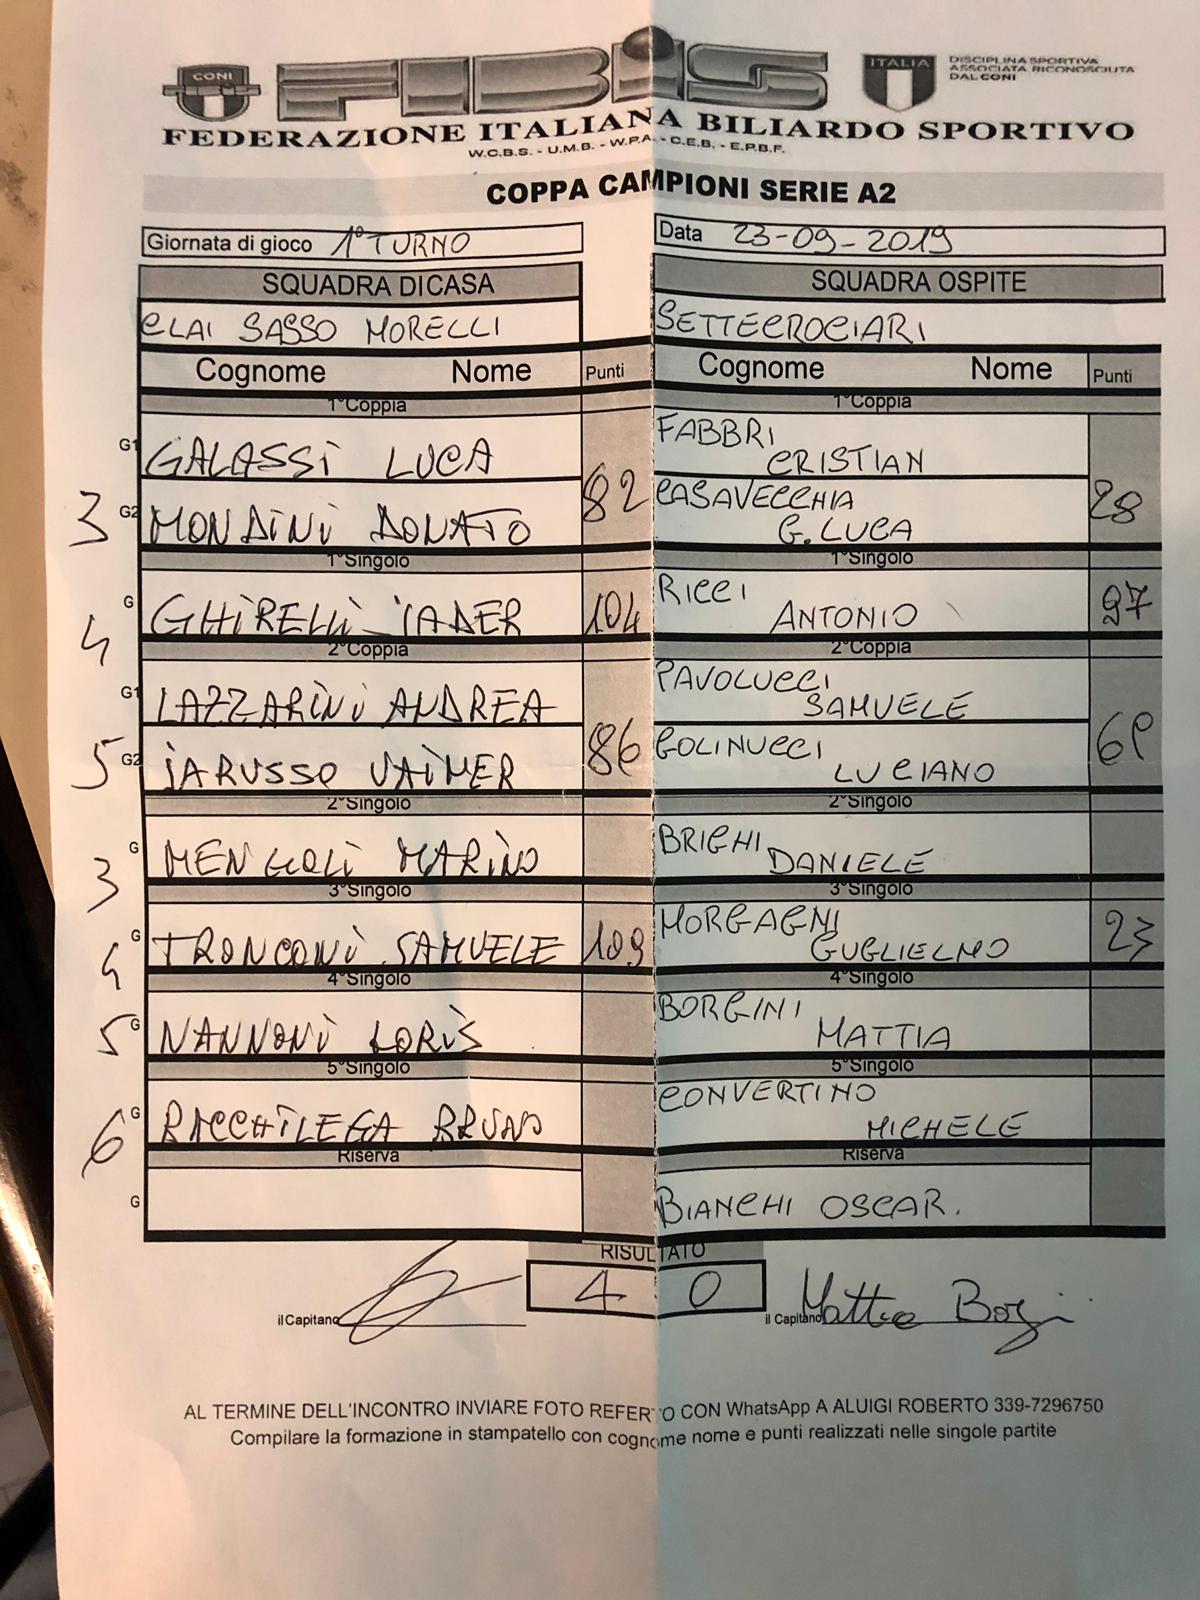 CONI
FIBIS
ITALIA
DISCIPLINA SPORTIVA
ASSOCIATA RICONOSCIUTA
DAL CONI
FEDERAZIONE ITALIANA BILIARDO SPORTIVO
W.C.B.S. - U.M.B. - W.P.A. - C.E.B. - E.P.B.F.
COPPA CAMPIONI SERIE A2
Giornata di gioco 1° TURNO
Data 23-09-2019
SQUADRA DI CASA
SQUADRA OSPITE
CLAI SASSO MORELLI
SETTECROCIARI
Cognome Nome Punti
Cognome Nome Punti
1°Coppia
1°Coppia
G1 GALASSI LUCA
FABBRI CRISTIAN
82
28
3 G2 MONDINI DONATO
CASAVECCHIA G. LUCA
1°Singolo
1°Singolo
4 G GHIRELLI IADER 104
RICCI ANTONIO 97
2°Coppia
2°Coppia
G1 LAZZARINI ANDREA
PAVOLUCCI SAMUELE
86
5 G2 IARUSSO VAIMER
GOLINUCCI LUCIANO
2°Singolo
2°Singolo
3 G MENGOLI MARINO
BRIGHI DANIELE
3°Singolo
3°Singolo
4 G TRONCONI SAMUELE 109
MORGAGNI GUGLIELMO 23
4°Singolo
4°Singolo
5 G NANNONI LORIS
BORGINI MATTIA
5°Singolo
5°Singolo
6 G BACCHILEGA BRUNO
CONVERTINO MICHELE
Riserva
Riserva
G
BIANCHI OSCAR.
RISULTATO
4 0
il Capitano
il Capitano
AL TERMINE DELL'INCONTRO INVIARE FOTO REFERTO CON WhatsApp A ALUIGI ROBERTO 339-7296750
Compilare la formazione in stampatello con cognome nome e punti realizzati nelle singole partite